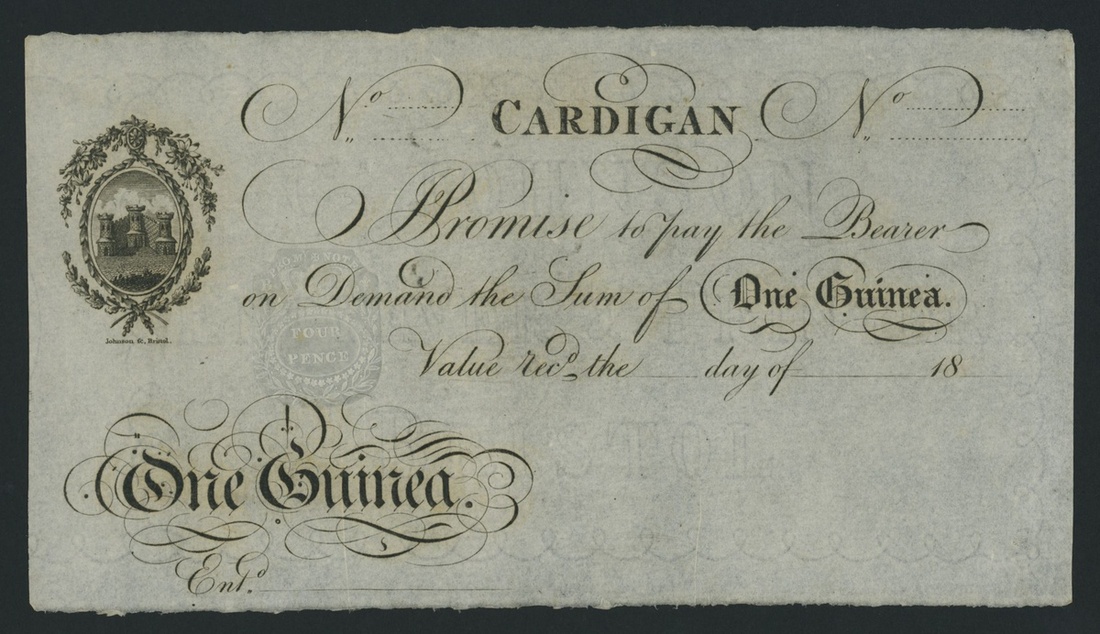 No CARDIGAN No
I Promise to pay the Bearer
on Demand the Sum of One Guinea.
Value recd. the day of 18
FOUR
PENCE
Johnson Sc. Bristol.
One Guinea.
Entd.